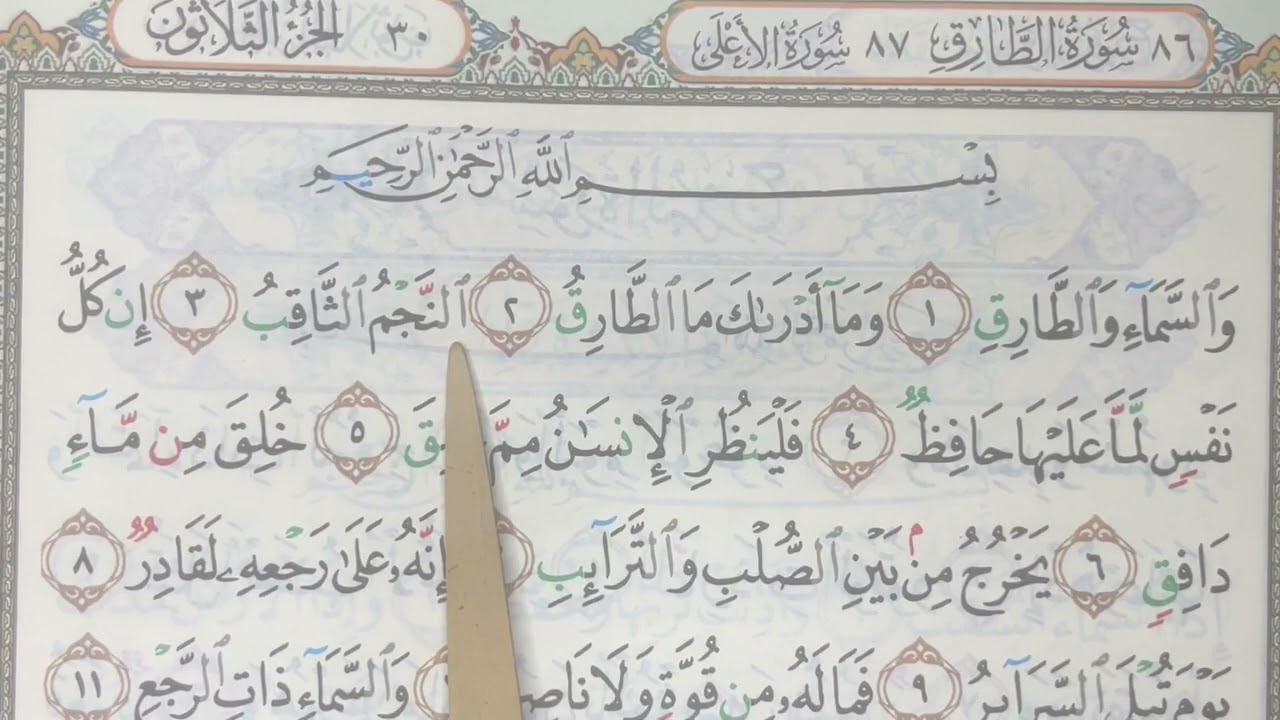 ٨٦ سُورَةُ الطَّارِقِ ٨٧ سُورَةُ الأَعْلَى ٣٠ الجُزْءُ الثَّلَاثُونَ
بِسْمِ ٱللَّهِ ٱلرَّحْمَٰنِ ٱلرَّحِيمِ
وَٱلسَّمَآءِ وَٱلطَّارِقِ ١ وَمَآ أَدْرَىٰكَ مَا ٱلطَّارِقُ ٢ ٱلنَّجْمُ ٱلثَّاقِبُ ٣ إِن كُلُّ
نَفْسٍ لَّمَّا عَلَيْهَا حَافِظٌ ٤ فَلْيَنظُرِ ٱلْإِنسَٰنُ مِمَّ ٥ خُلِقَ مِن مَّآءٍ
دَافِقٍ ٦ يَخْرُجُ مِنۢ بَيْنِ ٱلصُّلْبِ وَٱلتَّرَآئِبِ إِنَّهُۥ عَلَىٰ رَجْعِهِۦ لَقَادِرٌ ٨
يَوْمَ تُبْلَى ٱلسَّرَآئِرُ ٩ فَمَا لَهُۥ مِن قُوَّةٍ وَلَا وَٱلسَّمَآءِ ذَاتِ ٱلرَّجْعِ ١١